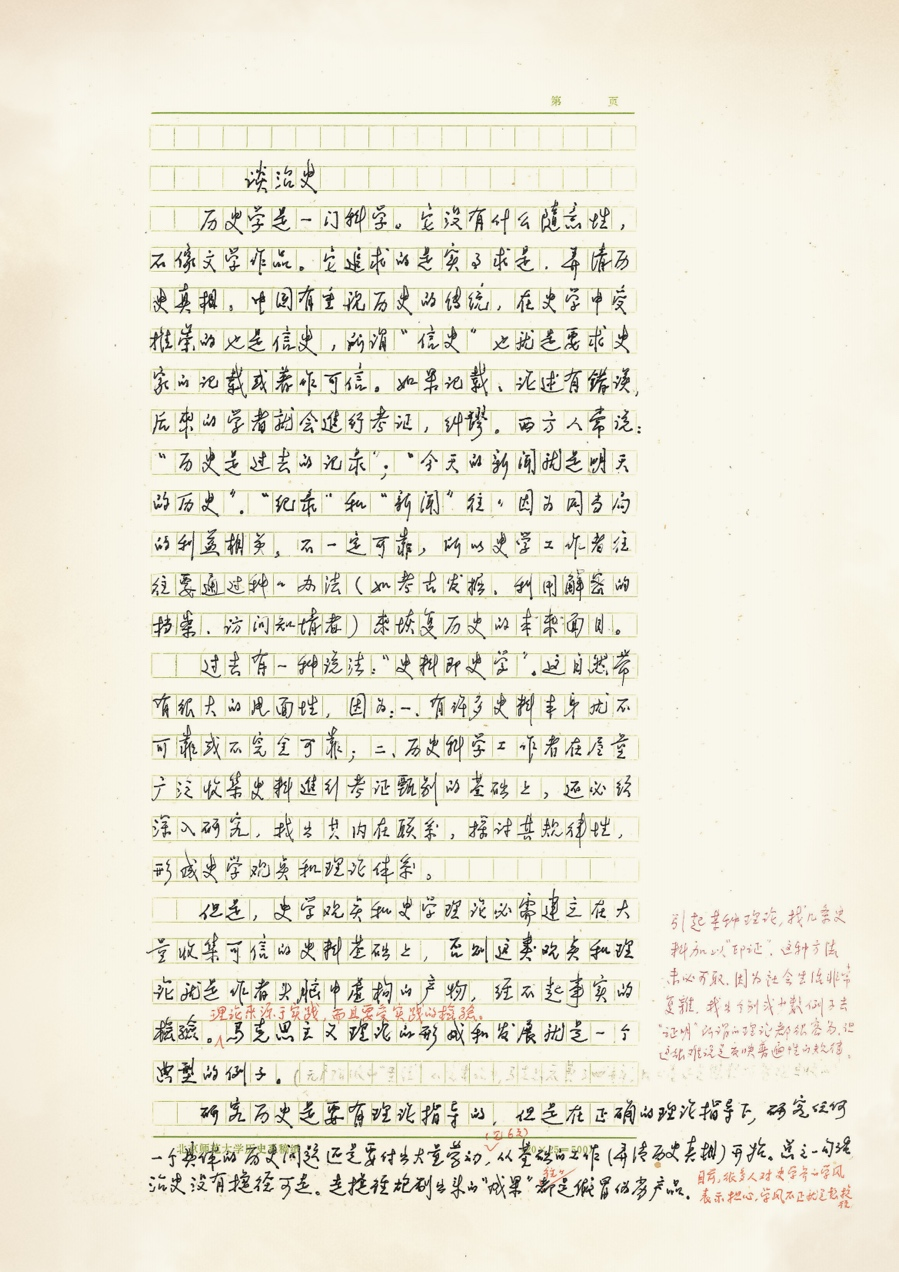 第 页
谈治史
历史学是一门科学。它没有什么随意性，
不像文学作品。它追求的是实事求是、弄清历
史真相。中国有重视历史的传统，在史学中受
推崇的也是信史，所谓“信史”也就是要求史
家的记载或著作可信。如果记载、论述有错误，
后来的学者就会进行考证，纠谬。西方人常说：
“历史是过去的记录”；“今天的新闻就是明天
的历史”。“纪录”和“新闻”往〻因为同当局
的利益相关，不一定可靠，所以史学工作者往
往要通过种〻办法（如考古发掘、利用解密的
档案、访问知情者）来恢复历史的本来面目。
过去有一种说法：“史料即史学”。这自然带
有很大的片面性，因为：一、有许多史料本身就不
可靠或不完全可靠；二、历史科学工作者在尽量
广泛收集史料进行考证甄别的基础上，还必须
深入研究，找出其内在联系，探讨其规律性，
形成史学观点和理论体系。
但是，史学观点和史学理论必需建立在大
量收集可信的史料基础上，否则这类观点和理
论就是作者头脑中虚构的产物，经不起事实的
理论来源于实践，而且要受实践的检验。
检验。马克思主义理论的形成和发展就是一个
典型的例子。
引起某种理论，找几条史
料加以“印证”，这种方法
未必可取。因为社会生活非常
复杂，找出个别或少数例子去
“证明”所谓的理论都很容易，但
这很难说是反映普遍性的规律。
研究历史是要有理论指导的，但是在正确的理论指导下，研究任何
北京师范大学历史系稿纸
一个具体的历史问题还是要付出大量劳动，从基础的工作（弄清历史真相）开始。总之一句话
治史没有捷径可走。走捷径炮制出来的“成果”都是假冒伪劣产品。
目前，很多人对史学界的学风
表示担心，学风不正就是